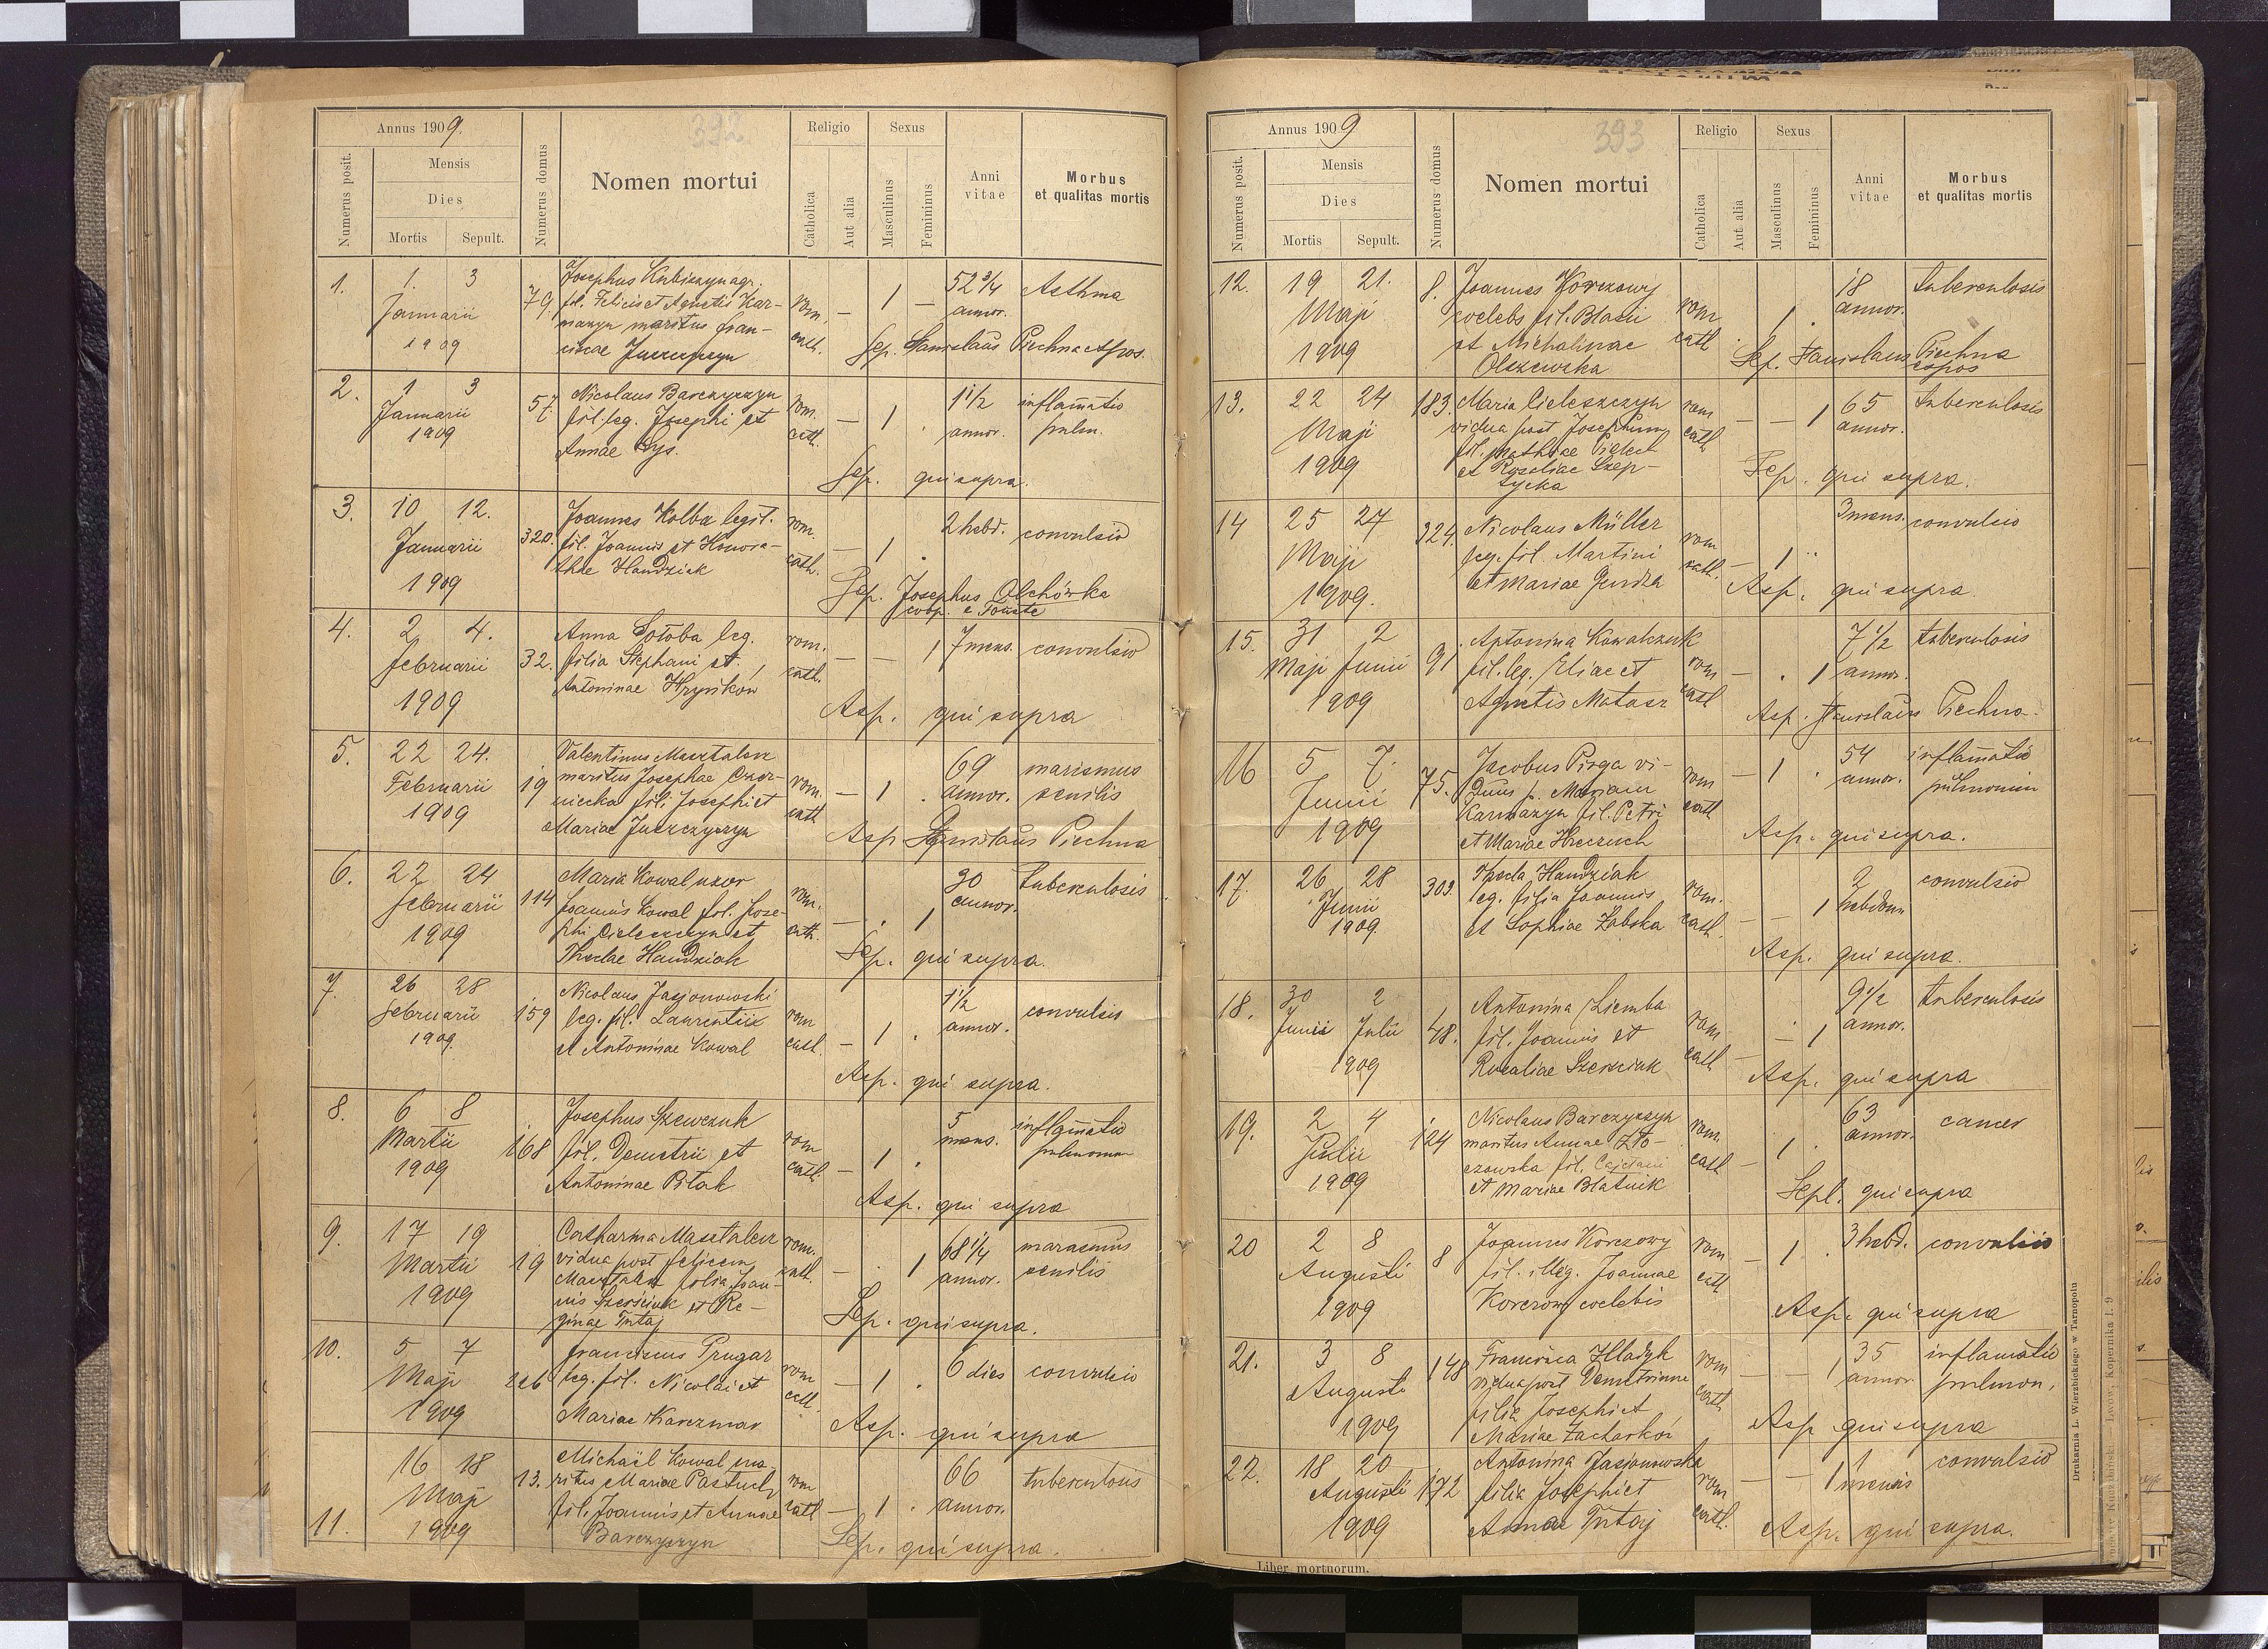 Annus 1909.
392
Numerus posit.
Mensis
Dies
Mortis Sepult.
Numerus domus
Nomen mortui
Religio
Catholica
Aut alia
Sexus
Masculinus
Femininus
Anni vitae
Morbus
et qualitas mortis
1. 1. 3 Januarii 1909 79.
Josephus
fil. Felicis et Agnetis Kar-
mazyn maritus Fran-
ciscae Juszczyszyn
rom. cath. — 1 — 52 3/4 annor. Asthma
Sep. Stanislaus Piechna expos.
2. 1 3 Januarii 1909 57.
Nicolaus Barczyszyn
fil. leg. Josephi et
Annae Lys.
rom. cath. — 1 1 1/2 annor. inflamatio pulm.
Sep. qui supra.
3. 10 12. Januarii 1909 320.
Joannes Kolba legit.
fil. Joannis et Honora-
thae Handziak
rom. cath. — 1 2 hebd. convulsio
Sep. Josephus Olchówka
coop. e Touste
4. 2 4. Februarii 1909 32.
Anna Sołoba leg.
filia Stephani et
Antoninae Hryńków
rom. cath. — — 1 7 mens. convulsio
Asp. qui supra
5. 22 24. Februarii 1909 19
Valentinus Masztalerz
maritus Josephae Czer-
niecka fil. Josephi et
Mariae Juszczyszyn
rom. cath — 1 . 69 annor. marismus senilis
Asp Stanislaus Piechna
6. 22 24 Februarii 1909 114
Maria Kowal uxor
Joannis Kowal fil. Jose-
phi Cieleszczyn et
Theclae Handziak
rom. cath. — . 1 30 annor. Tuberculosis
Sep. qui supra.
7. 26 28 Februarii 1909. 159
Nicolaus Jasjonowski
leg. fil. Laurentii
et Antoninae Kowal
rom cath. — 1 . 1 1/2 annor. convulsis
Asp. qui supra.
8. 6 8 Martii 1909 168
Josephus Szewczuk
fil. Demetrii et
Antoninae Ptak
rom cath. — 1 . 5 mens. inflamatio pulmonum
Asp. qui supra
9. 17 19 Martii 1909 19
Catharina Masztalerz
vidua post Felicem
Masztalerz filia Joan-
nis Szerściuk et Re-
ginae Tntaj
rom. cath. — . 1 68 1/4 annor. marasmus senilis
Sep. qui supra.
10. 5 7 Maji 1909 226
Franciscus Prugar
leg. fil. Nicolai et
Mariae Karczmar
rom cath. — 1 . 6 dies convulsio
Asp. qui supra
11. 16 18 Maji 1909 13.
Michaël Kowal ma-
ritus Mariae Pastuch
fil. Joannis et Annae
Barczyszyn
rom cath — 1 . 66 annor. tuberculosis
Sep. qui supra.
Annus 1909
393
Numerus posit.
Mensis
Dies
Mortis Sepult.
Numerus domus
Nomen mortui
Religio
Catholica
Aut alia
Sexus
Masculinus
Femininus
Anni vitae
Morbus
et qualitas mortis
12. 19 21. Maji 1909 8.
Joannes Korczowy
coelebs fil. Blasii
et Michalinae
Olszewska
rom cath . 1 . 18 annor. tuberculosis
Sep. Stanislaus Piechna
expos
13. 22 24 Maji 1909 183.
Maria Cieleszczyn
vidua post Josephum
fil. Mathiae Pielech
et Rosaliae Szep-
tycka
rom cath — — 1 65 annor. tuberculosis
Sep. qui supra.
14 25 27 Maji 1909. 324.
Nicolaus Müller
leg. fil. Martini
et Mariae Gendza
rom cath. — 1 3 mens. convulsio
Asp. qui supra.
15. 31 2 Maji Junii 1909 91
Antonina Kowalczuk
fil. leg. Eliae et
Agnetis Matasz
rom cath — . 1 7 1/2 annor. tuberculosis
Asp. Stanislaus Piechna.
16 5 7. Junii 1909 75.
Jacobus Pirga vi-
duus p. Mariam
Karmazyn fil. Petri
et Mariae Hreczuch
rom cath — 1 . 54 annor. inflamatio pulmonum
Asp. qui supra.
17. 26 28 Junii 1909. 309.
Thecla Handziak
leg. filia Joannis
et Sophiae Żabska
rom. cath. — — 1 2 hebdom convulsio
Asp. qui supra.
18. 30 2 Junii Julii 1909 48.
Antonina Ziemba
fil. Joannis et
Rozaliae Szerściuk
rom cath — — 1 9 1/2 annor. tuberculosis
Asp. qui supra
19. 2 4 Julii 1909 124
Nicolaus Barczyszyn
maritus Annae Zło-
czowska fil. Cajetani
et Mariae Blatnik
rom. cath — 1 . 63 annor. cancer
Sepl. qui supra
20 2 8 Augusti 1909 8
Joannes Korczowy
fil. illeg. Joannae
Korczowy coelebis
rom cath — 1 . 3 hebd. convulsio
Asp. qui supra
21. 3 8 Augusti 1909 148
Francisca Hładyk
vidua post Demetrium
filia Josephi et
Mariae Zacharków
rom cath — — 1 35 annor inflamatio pulmon.
Asp qui supra
22. 18 20 Augusti 1909 172
Antonina Jasjonowska
filia Josephi et
Annae Tntaj
rom cath. — — 1 1 mensis convulsio
Asp. qui supra.
Liber mortuorum.
Drukarnia L. Wierzbickiego w Tarnopolu
Lwów, Kopernika l. 9